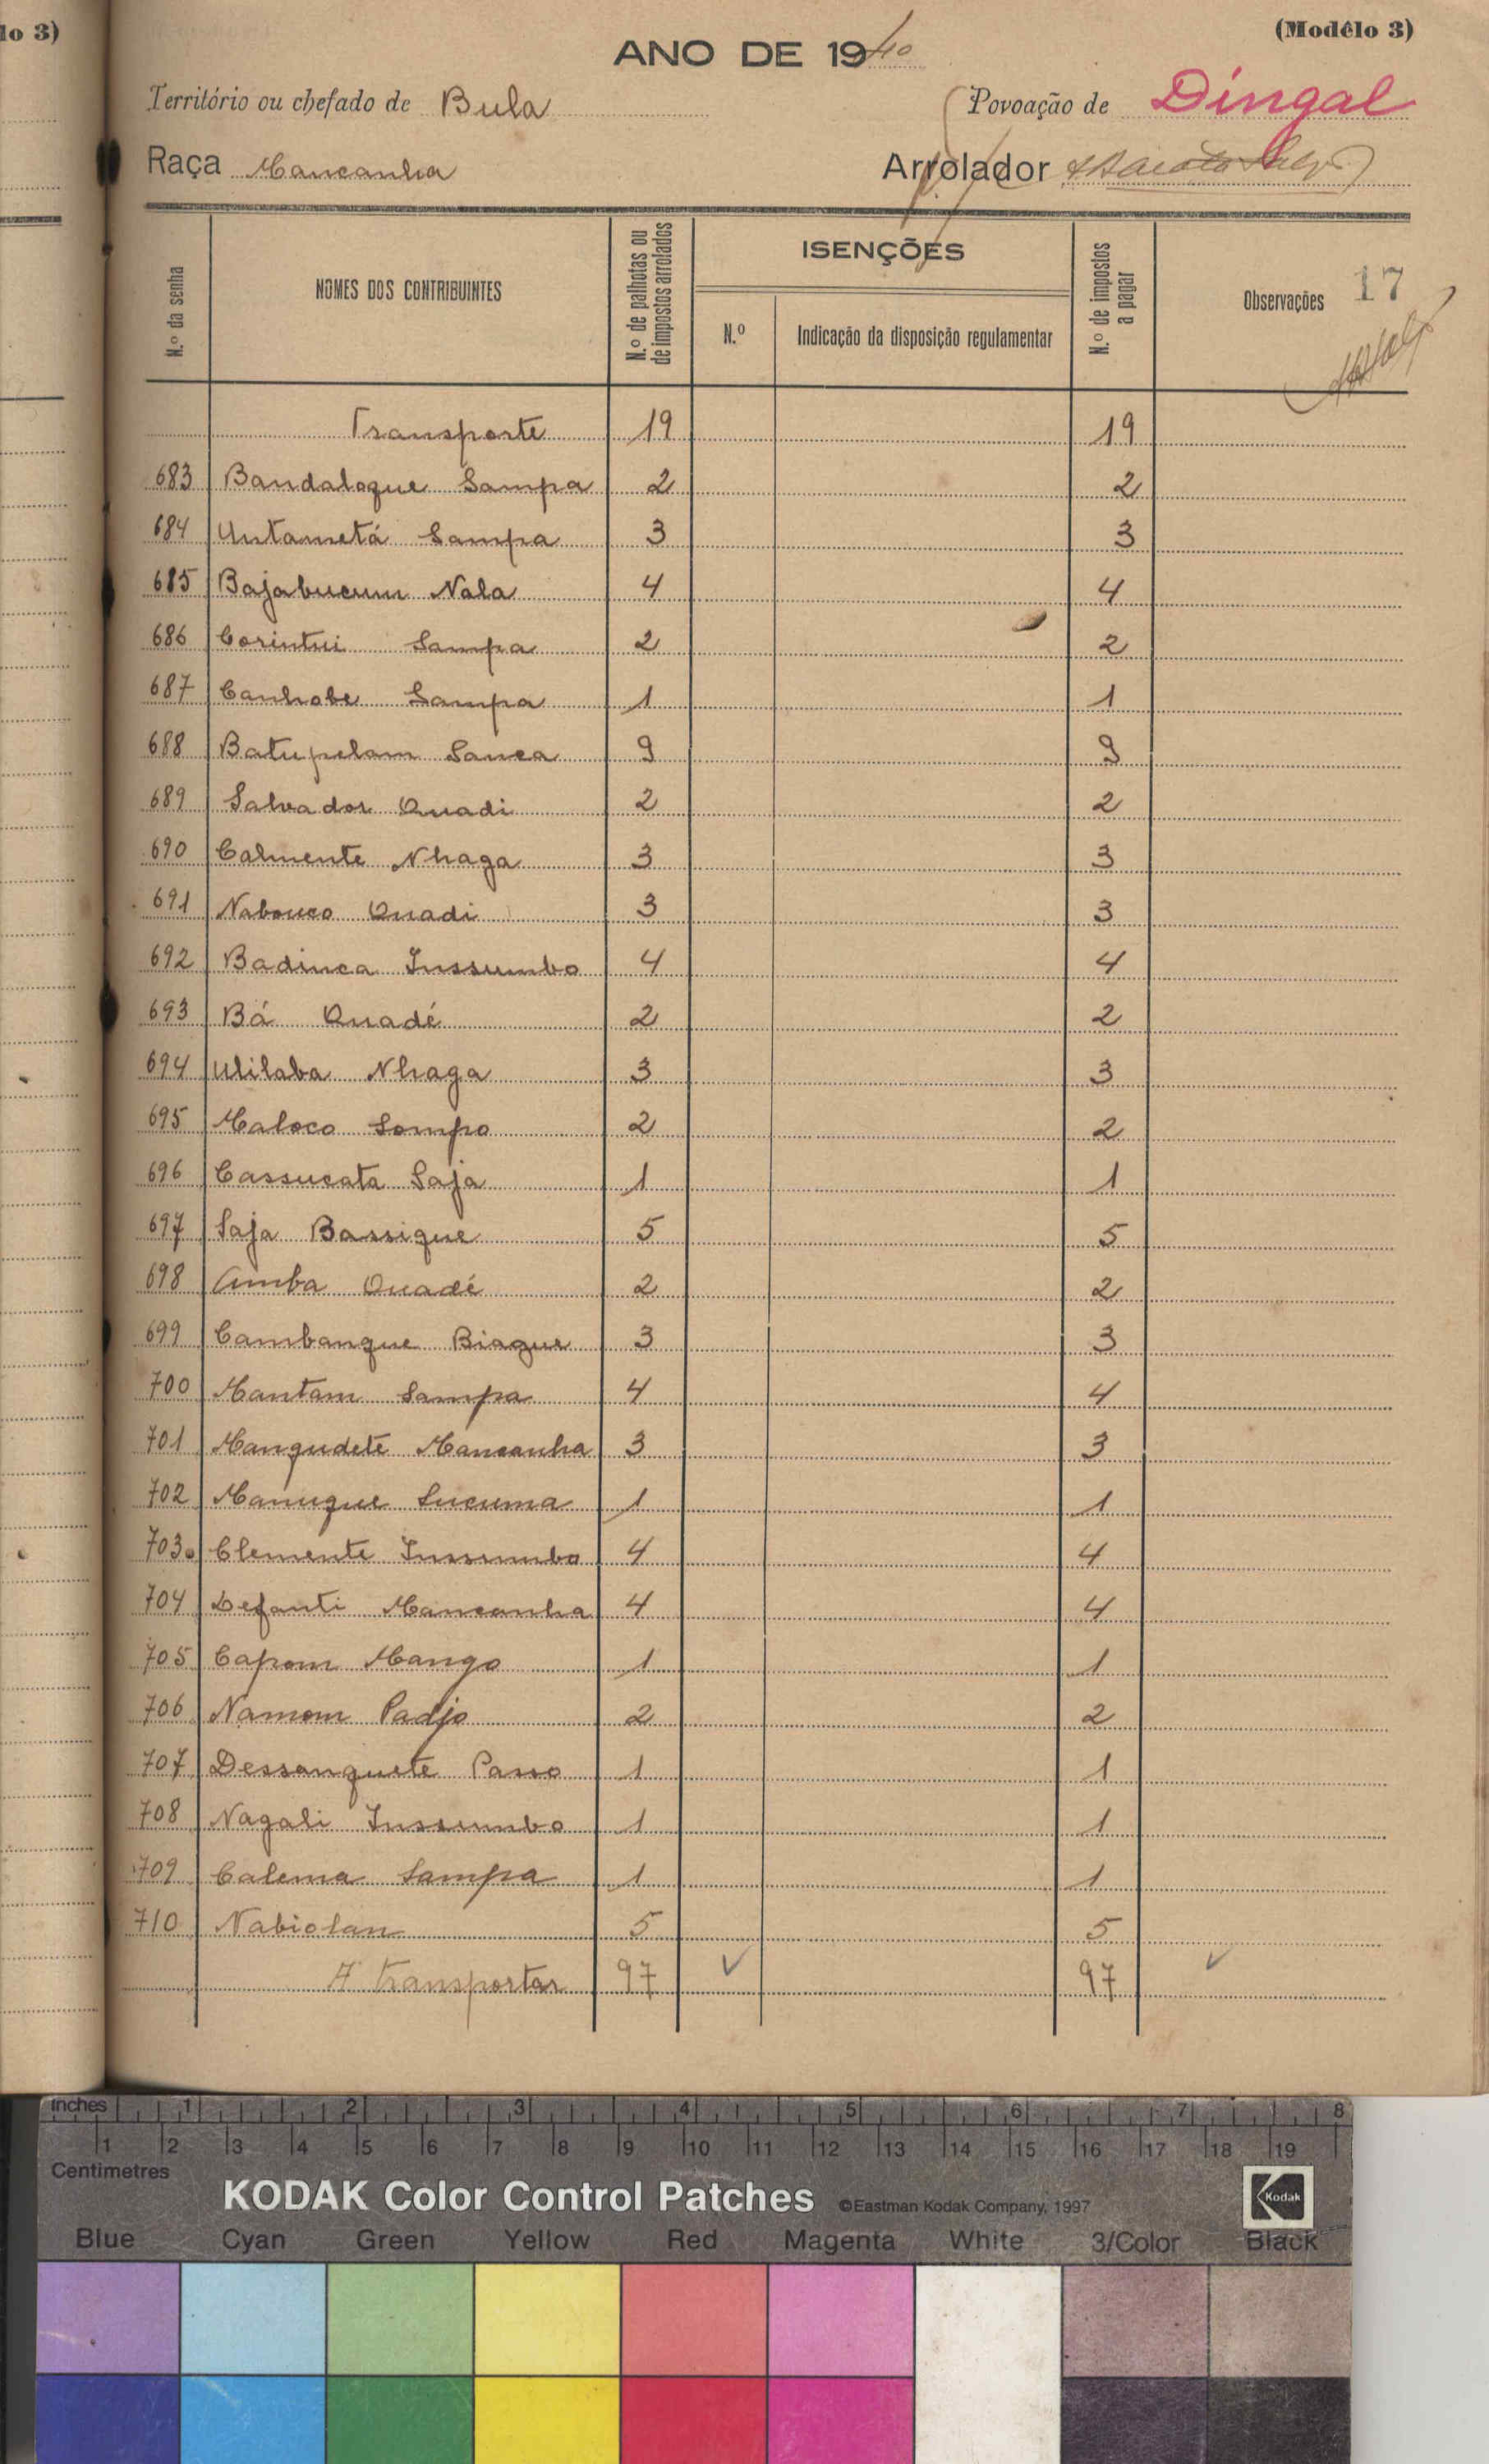 lo 3)
(Modêlo 3)
ANO DE 1940
Território ou chefado de Bula
Povoação de Dingal
Raça Mancanha
Arrolador
N.º da senha
NOMES DOS CONTRIBUINTES
N.º de palhotas ou de impostos arrolados
ISENÇÕES
N.º
Indicação da disposição regulamentar
N.º de impostos a pagar
Observações
17
Transporte 19 19
683 Bandaloque Sampa 2 2
684 Untametá Sampa 3 3
685 Bajabucum Nala 4 4
686 Corintui Sampa 2 2
687 Canhobe Sampa 1 1
688 Batupelam Sanca 9 9
689 Salvador Quadi 2 2
690 Calmente Nhaga 3 3
691 Nabouco Quadi 3 3
692 Badinca Inssumbo 4 4
693 Bá Quadé 2 2
694 Ulilaba Nhaga 3 3
695 Maloco Sompo 2 2
696 Cassucata Saja 1 1
697 Saja Bassique 5 5
698 Amba Quadé 2 2
699 Cambanque Biague 3 3
700 Mantam Sampa 4 4
701 Mangudete Mancanha 3 3
702 Manuque Sucuma 1 1
703 Clemente Inssumbo 4 4
704 Defanti Mancanha 4 4
705 Capom Mango 1 1
706 Namom Padjo 2 2
707 Dessanquete Passo 1 1
708 Nagali Inssumbo 1 1
709 Calema Sampa 1 1
710 Nabiolan 5 5
A transportar 97 ✓ 97 ✓
Inches 1 2 3 4 5 6 7 8
1 2 3 4 5 6 7 8 9 10 11 12 13 14 15 16 17 18 19
Centimetres
KODAK Color Control Patches ©Eastman Kodak Company, 1997 Kodak
Blue Cyan Green Yellow Red Magenta White 3/Color Black